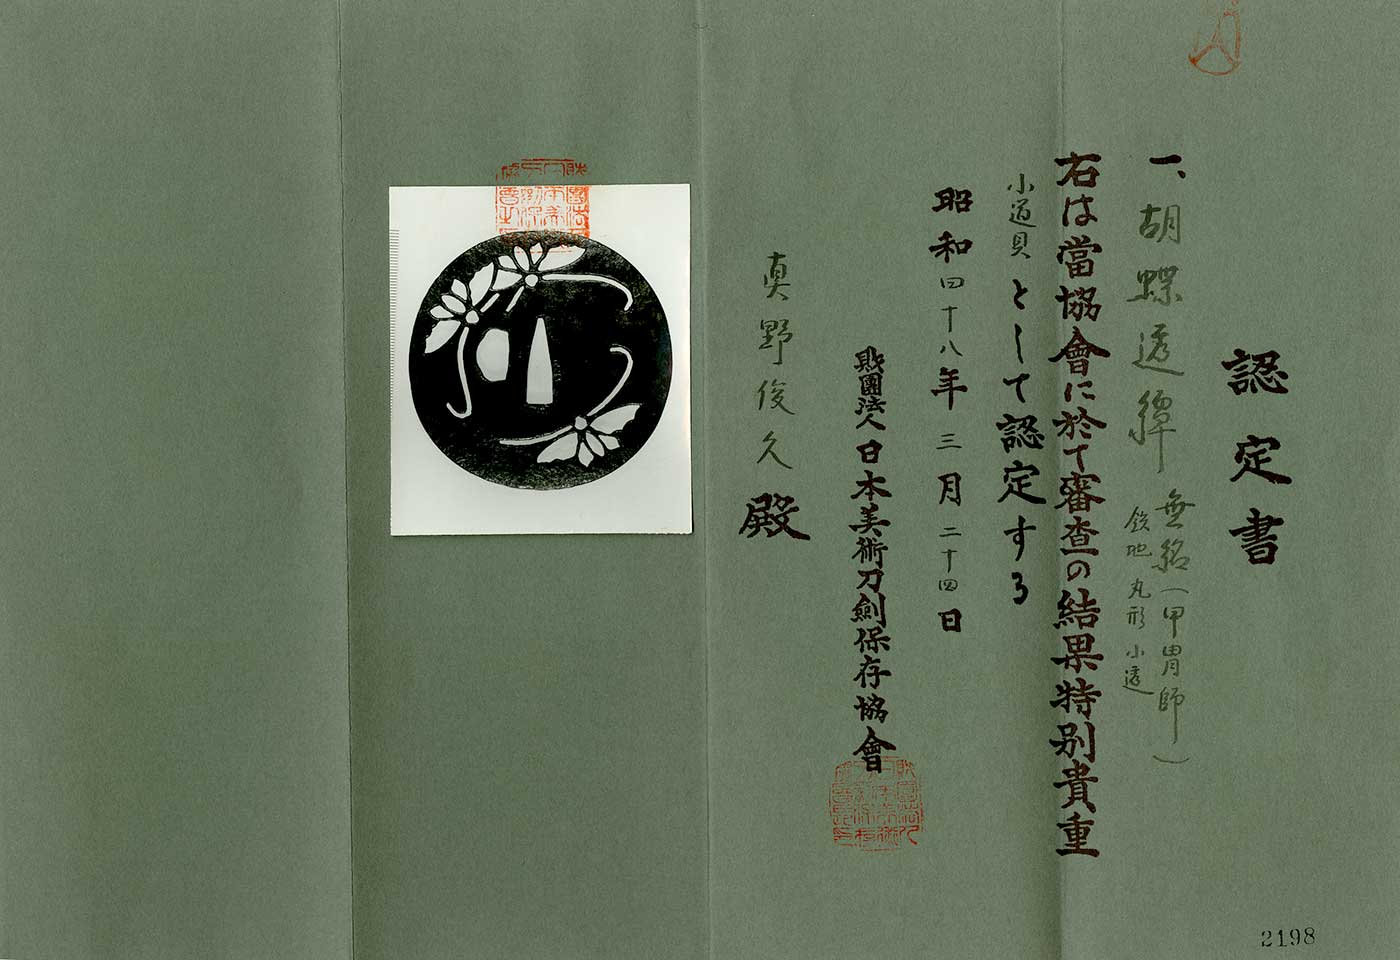 認定書
一、胡蝶透鐔 無銘(甲冑師)
鉄地 丸形 小透
右は當協會に於て審査の結果特別貴重
小道具として認定する
昭和四十八年三月二十四日
財團法人日本美術刀劍保存協會
真野俊久殿
2198